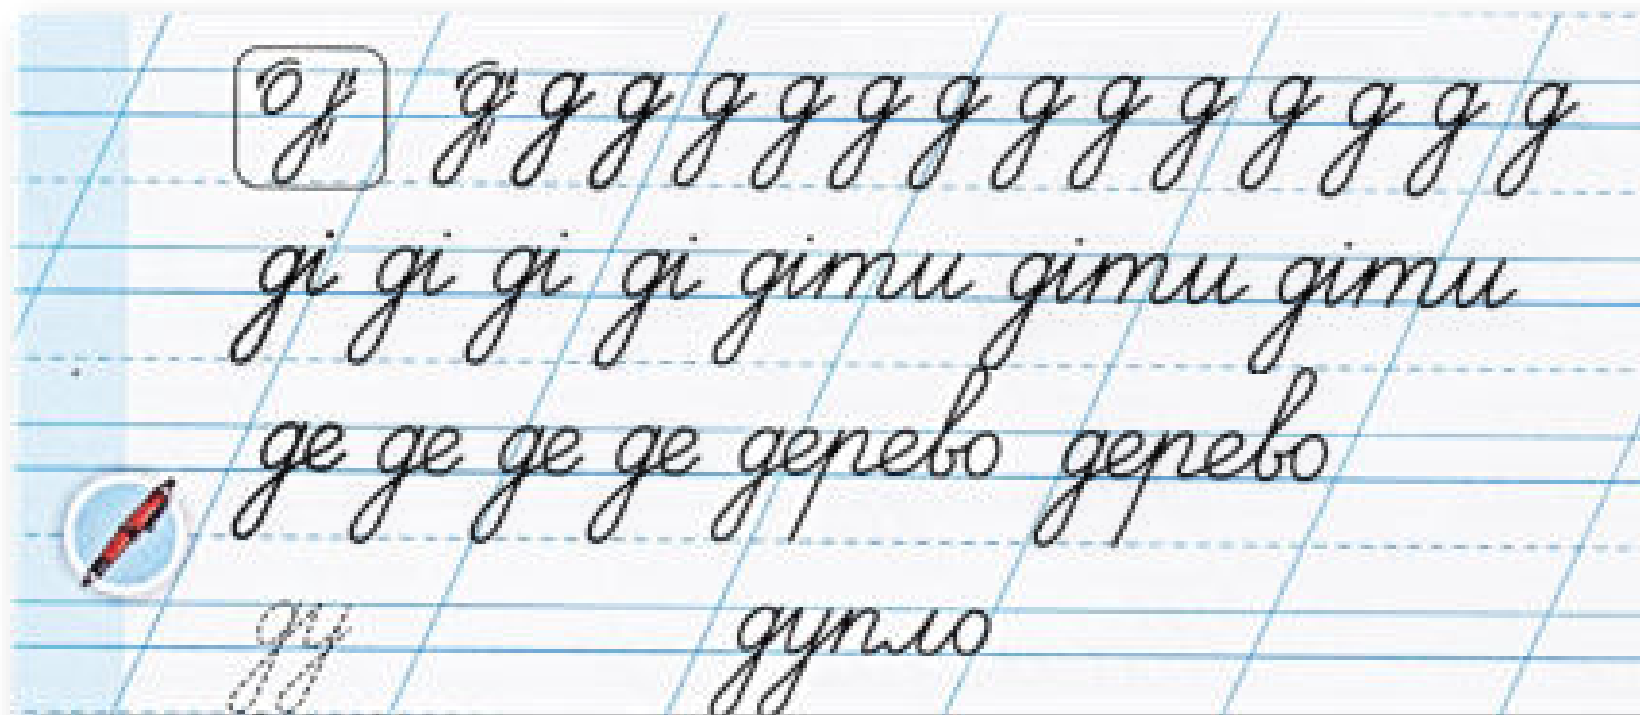 д д д д д д д д д д д д д д д
ді ді ді ді діти діти діти
де де де де дерево дерево
ду дупло